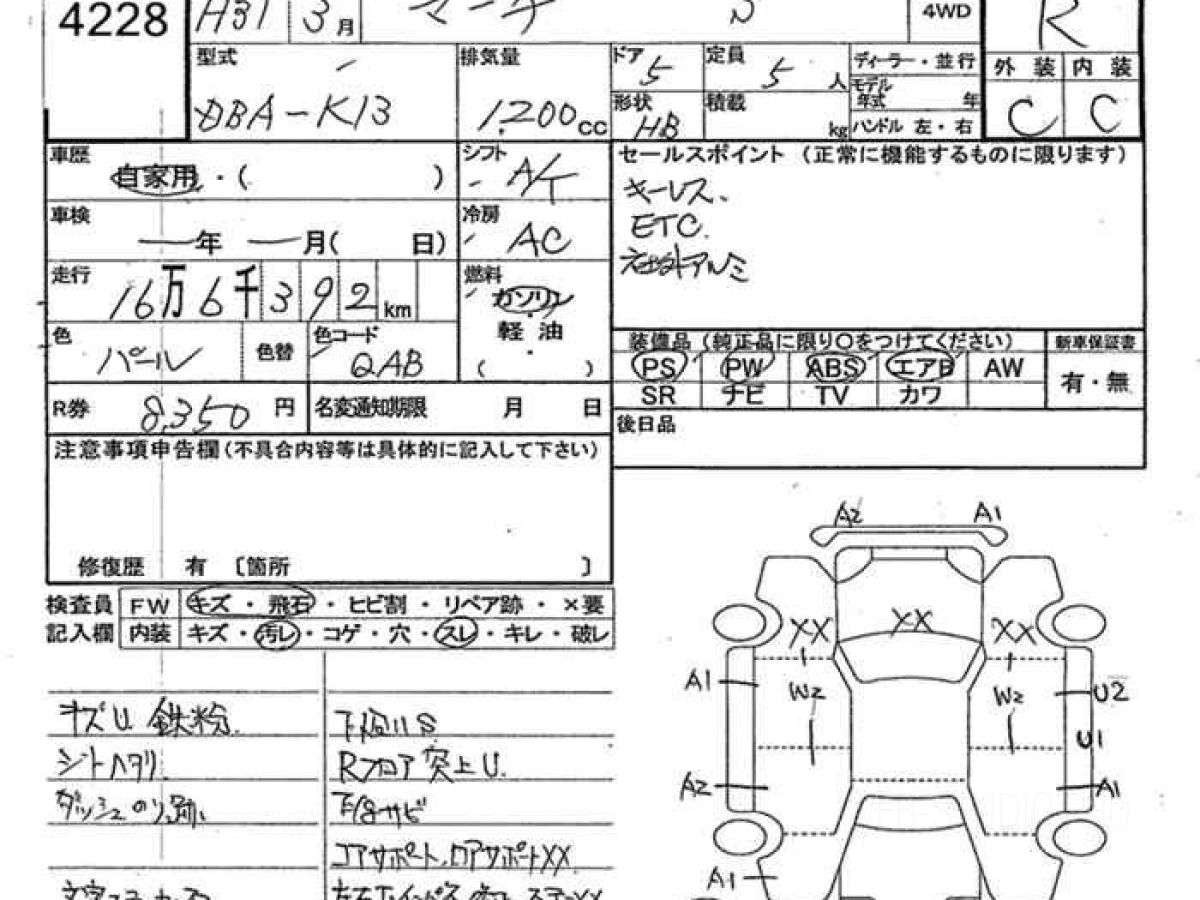 4228
H31 3月 マーチ 5 4WD R
型式 排気量 ドア 5 定員 5人 ディーラー・並行 外装 内装
モデル年式 年
DBA-K13 1,200cc 形状 HB 積載 kg ハンドル 左・右 C C
車歴 自家用・( ) シフト A/T セールスポイント (正常に機能するものに限ります)
キーレス、
車検 年 月( 日) 冷房 AC ETC.
社外アルミ
走行 16万6千392km 燃料 ガソリン
軽油
( )
色 パール 色替 色コード QAB
装備品 (純正品に限り○をつけてください) 新車保証書
PS PW ABS エアB AW 有・無
SR ナビ TV カワ
R券 8,350円 名変通知期限 月 日 後日品
注意事項申告欄(不具合内容等は具体的に記入して下さい)
修復歴 有 〔箇所 〕
検査員 FW キズ・飛石・ヒビ割・リペア跡・×要
記入欄 内装 キズ・汚レ・コゲ・穴・スレ・キレ・破レ
キズU 鉄粉
シートヘタリ
ダッシュのり跡
下廻りS
Rフロア突上U.
下廻サビ
コアサポート、ロアサポートXX
A2 A1
XX XX XX
A1 W2 W2 U2
U1
A2 A1
A1